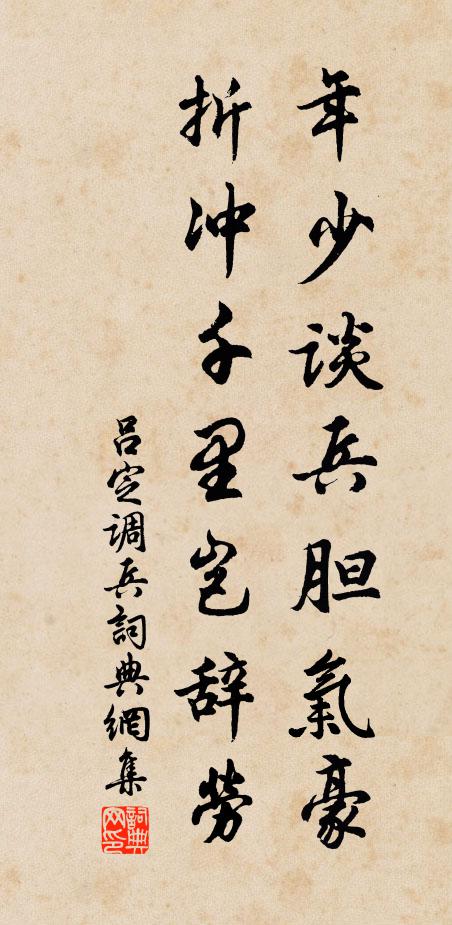 年少谈兵胆氣豪
折冲千里岂辞勞
吕定调兵詞典網集
詞典网印